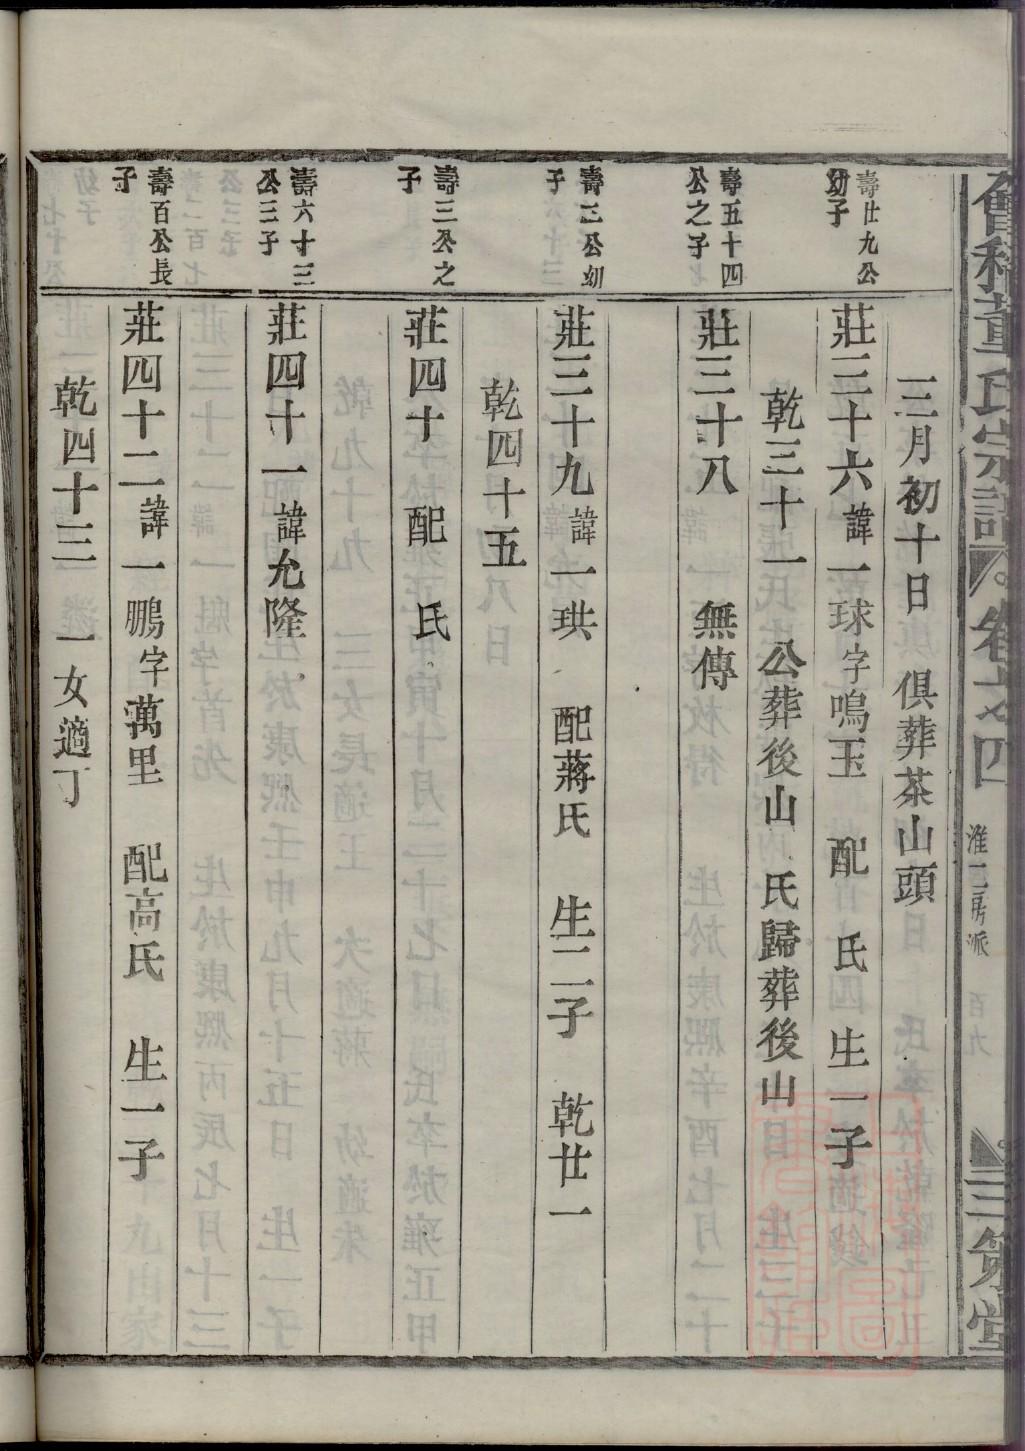 會稽董氏宗譜 卷之四 淮二房派 百九 三策堂
三月初十日 俱葬茶山頭
壽廿九公
幼子
莊三十六 諱一球 字鳴玉 配 氏 生一子
乾三十一 公葬後山 氏歸葬後山
壽五十四
公之子
莊三十八 無傳
壽三公幼
子
莊三十九 諱一珙 配蔣氏 生二子 乾廿一
乾四十五
壽三公之
子
莊四十 配 氏
壽六十三
公三子
莊四十一 諱允隆
壽百公長
子
莊四十二 諱一鵬 字萬里 配高氏 生一子
乾四十三 一女適丁